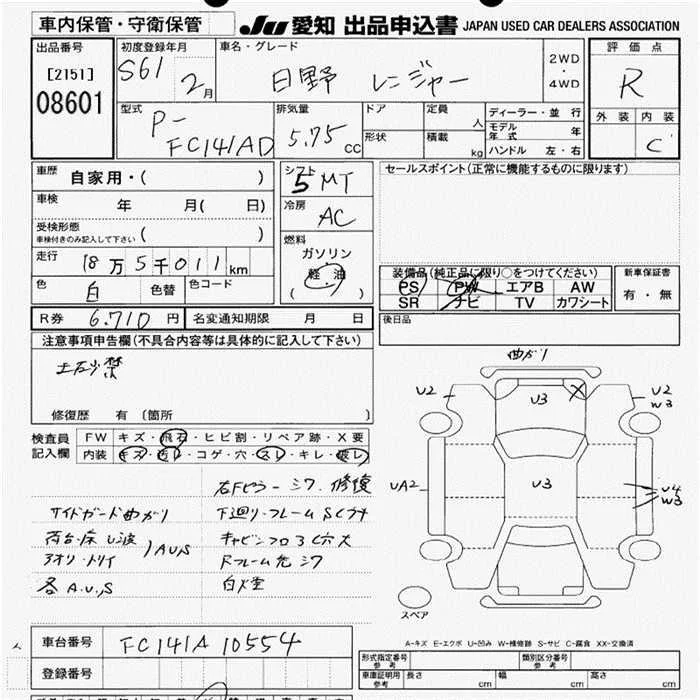 車内保管・守衛保管
JU 愛知 出品申込書 JAPAN USED CAR DEALERS ASSOCIATION
出品番号
[2151]
08601
初度登録年月
S61 2月
車名・グレード
日野 レンジャー
2WD
・
4WD
評価点
R
外装 内装
C
型式
P-
FC141AD
排気量
5.75 CC
ドア
形状
定員
人
積載
kg
ディーラー・並行
モデル年式 年
ハンドル 左・右
車歴 自家用・( )
車検 年 月( 日)
受検形態
車検付きのみ記入して下さい ( )
走行 18万5千011km
色 白 色替 色コード
シフト
5 MT
冷房
AC
燃料
ガソリン
軽・油
( )
セールスポイント(正常に機能するものに限ります)
装備品(純正品に限り○をつけてください)
PS PW エアB AW
SR ナビ TV カワシート
新車保証書
有・無
R券 6,710円 名変通知期限 月 日
後日品
注意事項申告欄(不具合内容等は具体的に記入して下さい)
土砂禁
修復歴 有 〔箇所 〕
検査員
記入欄
FW キズ・飛石・ヒビ割・リペア跡・X要
内装 キズ・汚レ・コゲ・穴・スレ・キレ・破レ
右Fピラーシワ修復
サイドガード曲がり
下廻り・フレームSCサ
荷台・床凹波
アオリ・トリイ
AUS
キャビンフロアC穴大
Rフレーム先シワ
各A.U,S
白ボ全
曲がり
U2
U3
U2
W3
UA2
U3
U4
W3
スペア
A-キズ E-エクボ U-凹み W-補修跡 S-サビ C-腐食 XX-交換済
車台番号 FC141A 10554
登録番号
形式指定番号
参考
類別区分番号
参考
車庫証明用
参考
長さ cm 幅 cm 高さ cm